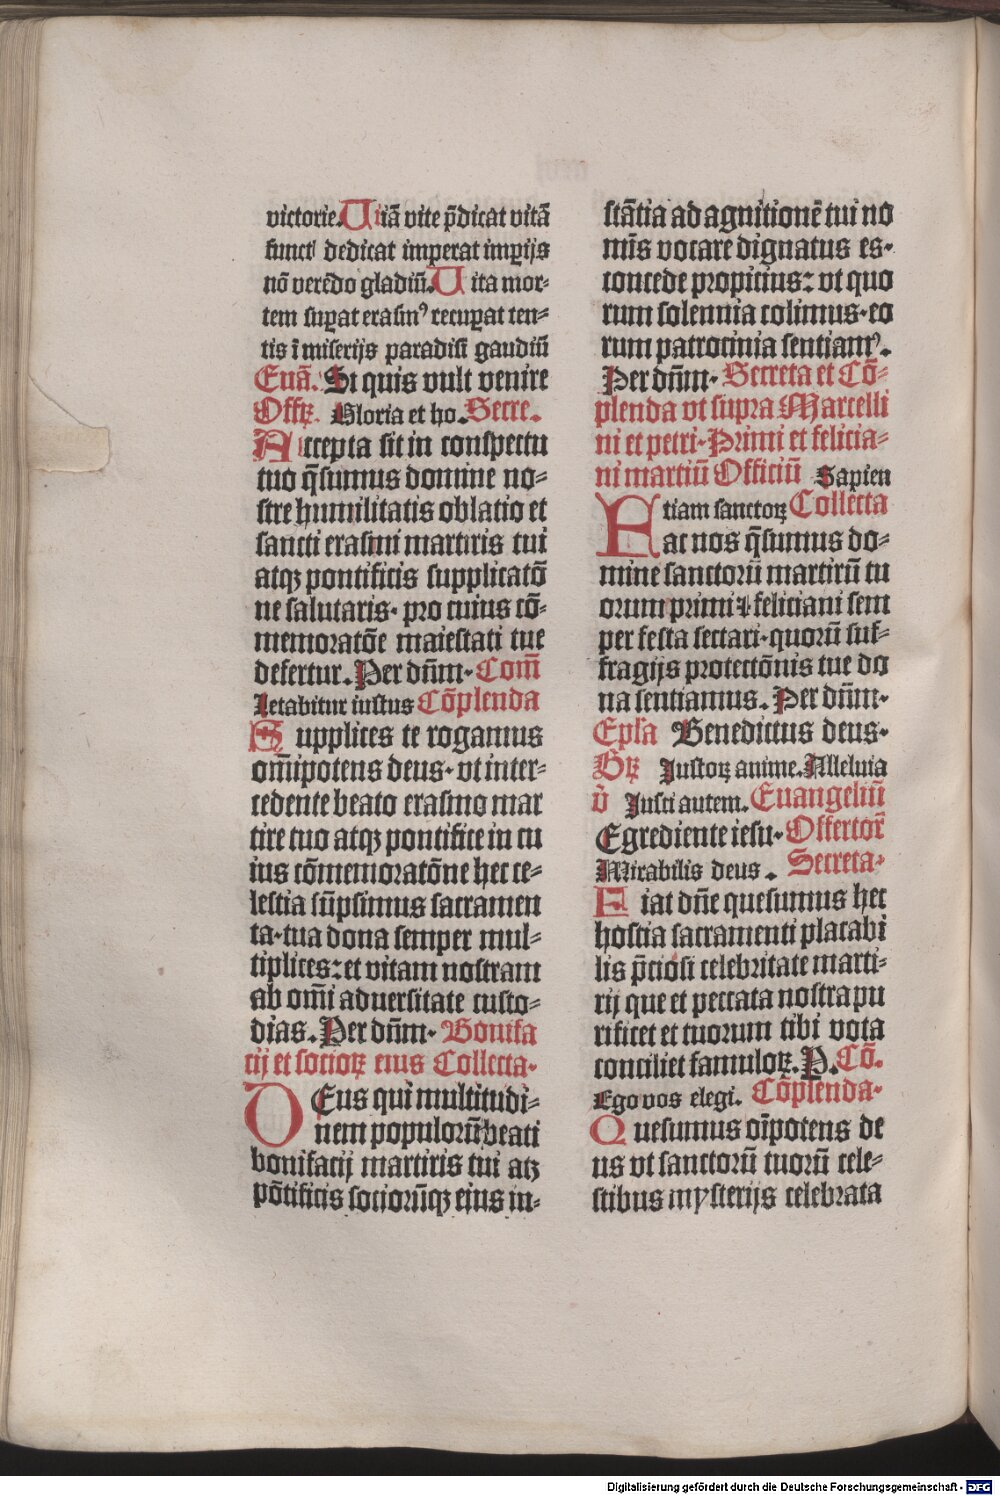 victorie. Uitā vite p̄dicat vitā
functꝰ dedicat imperat imꝑijs
nō verēdo gladiū. Uita mor-
tem suꝑat erasmꝰ recuꝑat ten-
tis ī miserijs paradisi gaudiū
Euā. Si quis vult venire
Offꝝ. Gloria et ho. Secre.
Accepta sit in conspectu
tuo q̄sumus domine no-
stre humilitatis oblatio et
sancti erasmi martiris tui
atqꝫ pontificis supplicatō
ne salutaris· pro cuius cō-
memoratōe maiestati tue
defertur. Per dn̄m· Com̄
Letabitur iustus Cōplenda
Supplices te rogamus
om̄ipotens deus· vt inter-
cedente beato erasmo mar
tire tuo atqꝫ pontifice in cu
ius cōmemoratōne hec ce-
lestia sūpsimus sacramen
ta· tua dona semper mul-
tiplices: et vitam nostram
ab om̄i aduersitate custo-
dias. Per dn̄m· Bonifa
cij et socioꝝ eius Collecta·
DEus qui multitudi-
nem populorū beati
bonifacij martiris tui atꝫ
pōtificis sociorūqꝫ eius in-
stātia ad agnitionē tui no
mīs vocare dignatus es·
concede propicius: vt quo
rum solennia colimus· eo
rum patrocinia sentiamꝰ.
Per dn̄m· Secreta et Cō-
plenda vt supra Marcelli
ni et petri· Primi et felicia-
ni martiū Officiū Sapien
tiam sanctoꝝ Collecta
Fac nos q̄sumus do-
mine sanctorū martirū tu
orum primi ⁊ feliciani sem
per festa sectari· quorū suf-
fragijs protectōnis tue do
na sentiamus. Per dn̄m·
Epl̄a Benedictus deus·
Gꝝ Iustoꝝ anime. Alleluia
v̄ Iusti autem. Euangeliū
Egrediente iesu· Offertor̄
Mirabilis deus. Secreta·
Fiat dn̄e quesumus hec
hostia sacramenti placabi
lis p̄ciosi celebritate marti-
rij que et peccata nostra pu
rificet et tuorum tibi vota
conciliet famuloꝝ. P. Cō.
Ego vos elegi. Cōplenda·
Quesumus oīpotens de
us vt sanctorū tuorū cele-
stibus mysterijs celebrata
Digitalisierung gefördert durch die Deutsche Forschungsgemeinschaft - DFG